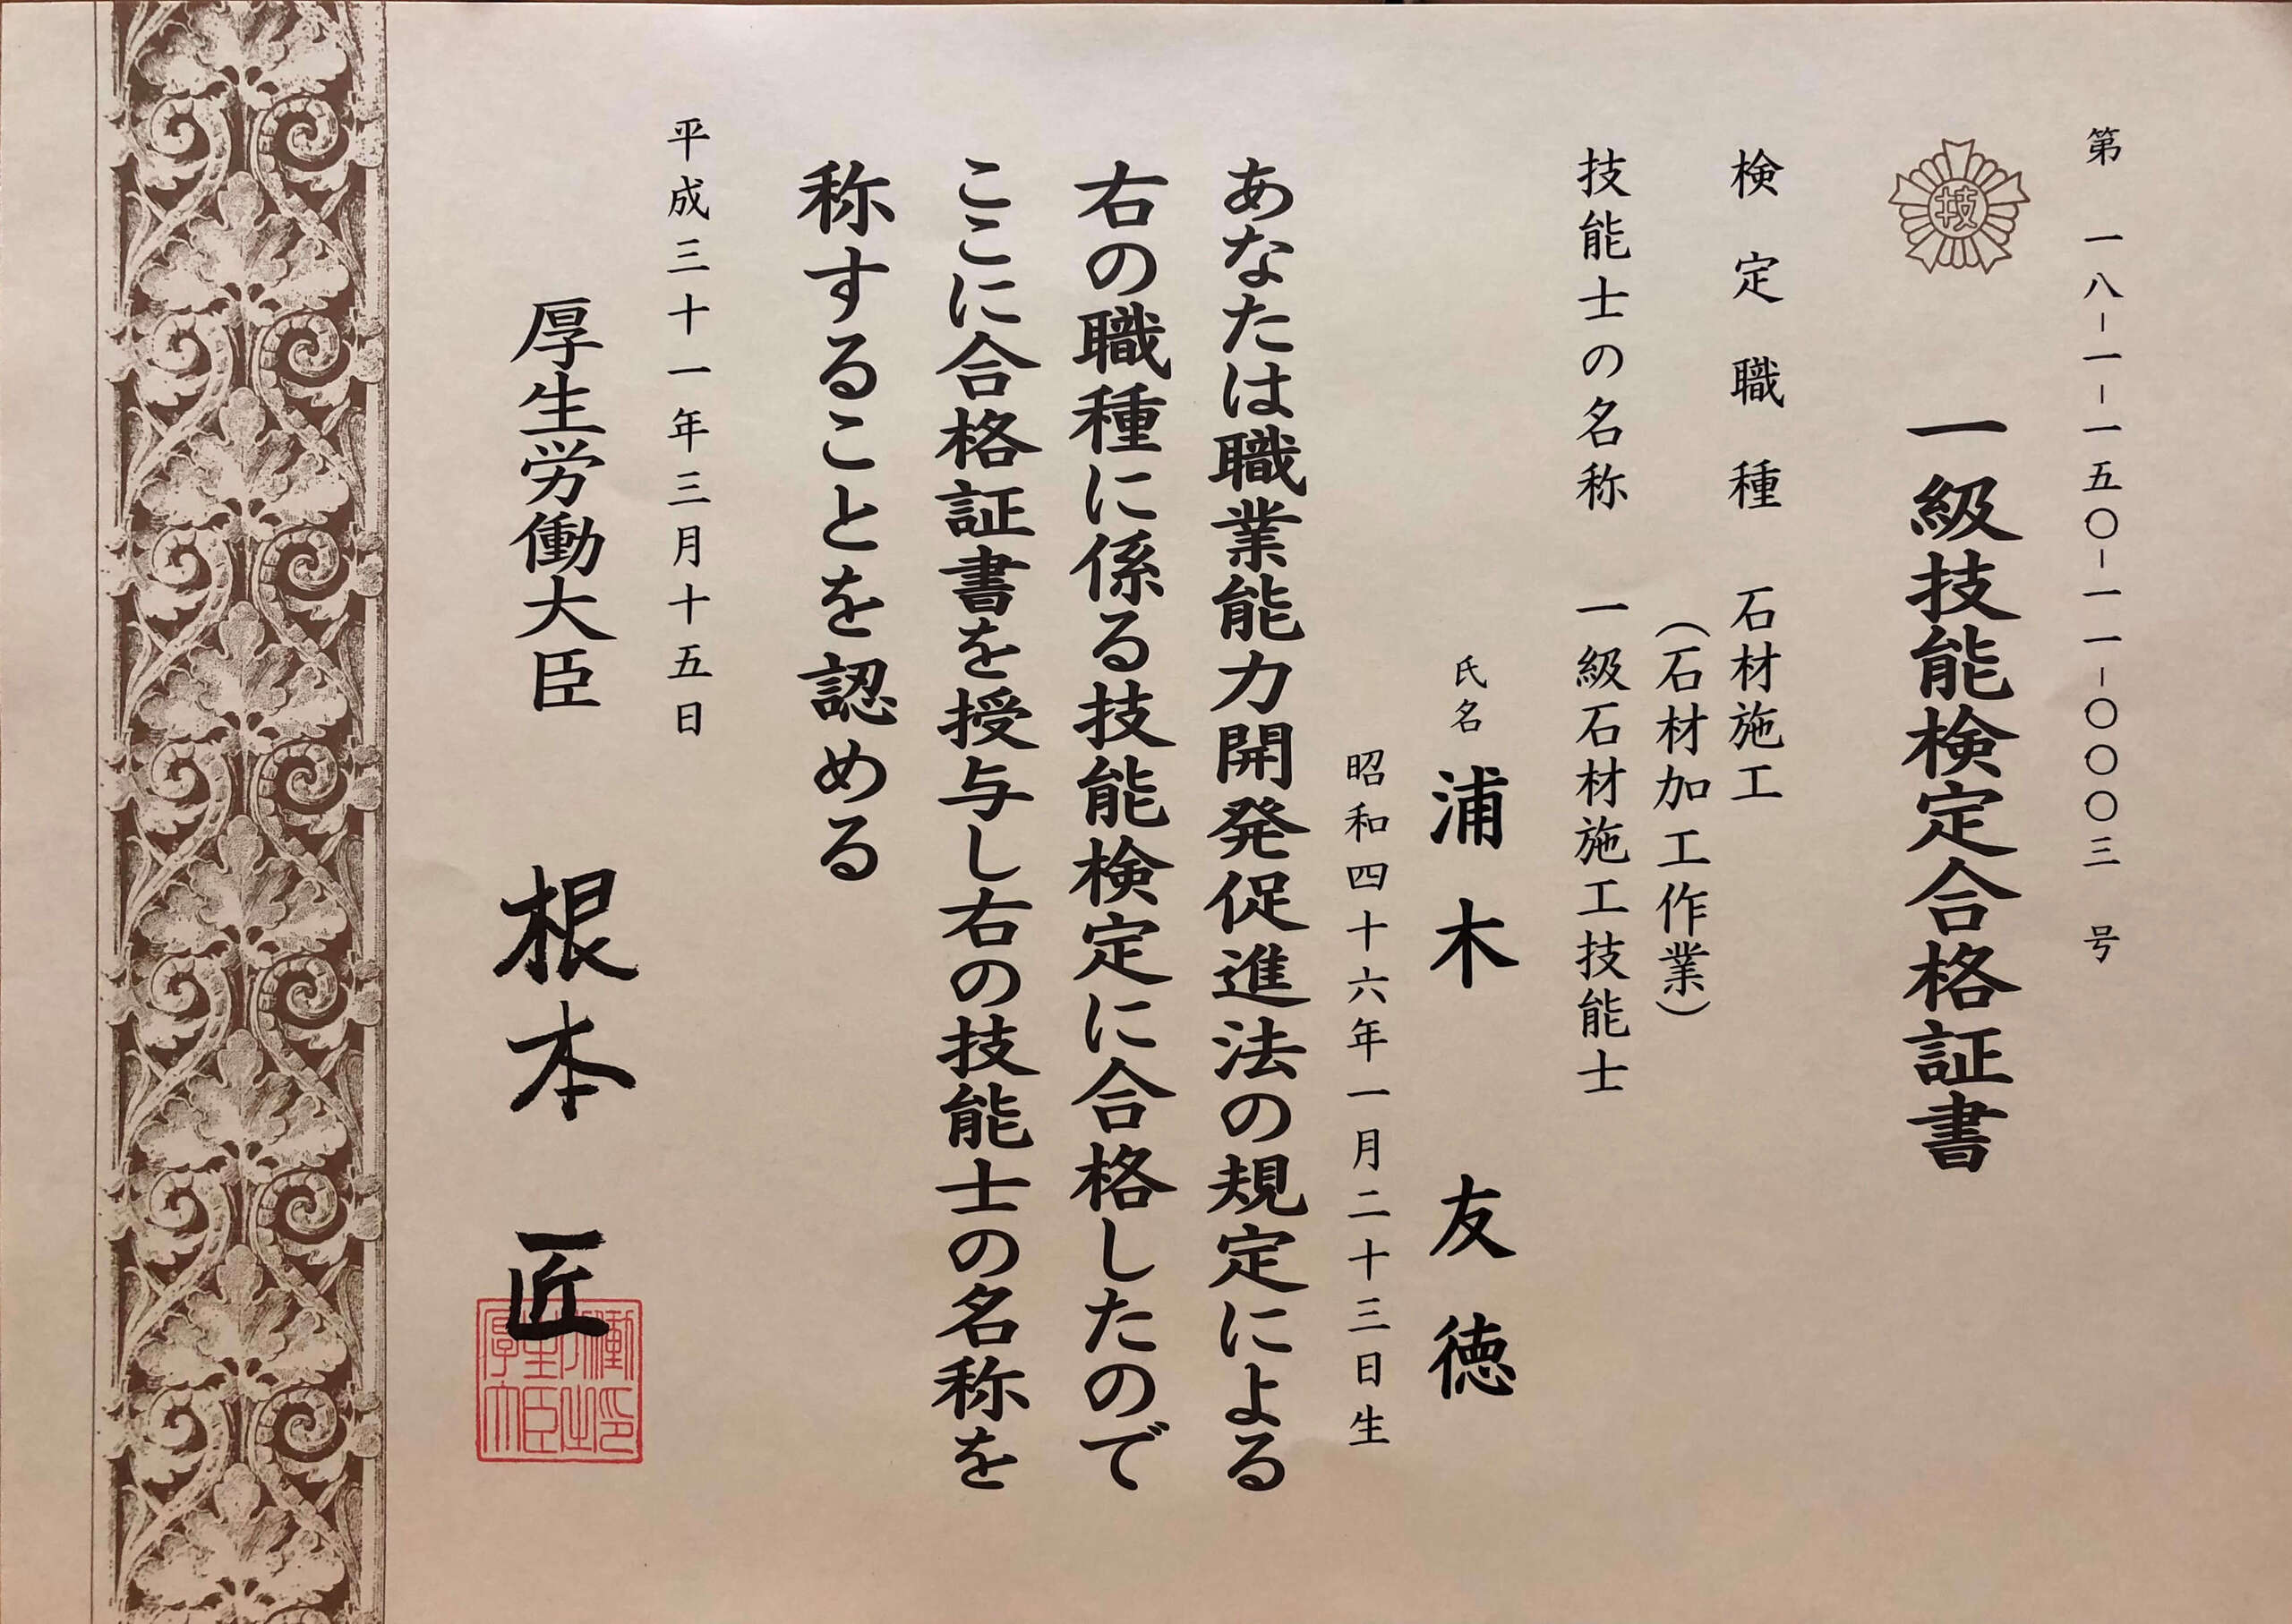 第 一八-一-一五〇-一一-〇〇〇三 号
技
一級技能検定合格証書
検定職種 石材施工
(石材加工作業)
技能士の名称 一級石材施工技能士
氏名 浦木 友徳
昭和四十六年一月二十三日生
あなたは職業能力開発促進法の規定による
右の職種に係る技能検定に合格したので
ここに合格証書を授与し右の技能士の名称を
称することを認める
平成三十一年三月十五日
厚生労働大臣 根本 匠